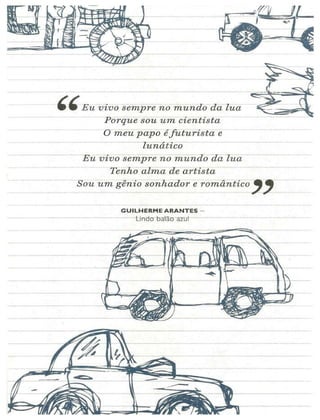 “Eu vivo sempre no mundo da lua
Porque sou um cientista
O meu papo é futurista e
lunático
Eu vivo sempre no mundo da lua
Tenho alma de artista
Sou um gênio sonhador e romântico”
GUILHERME ARANTES –
Lindo balão azul